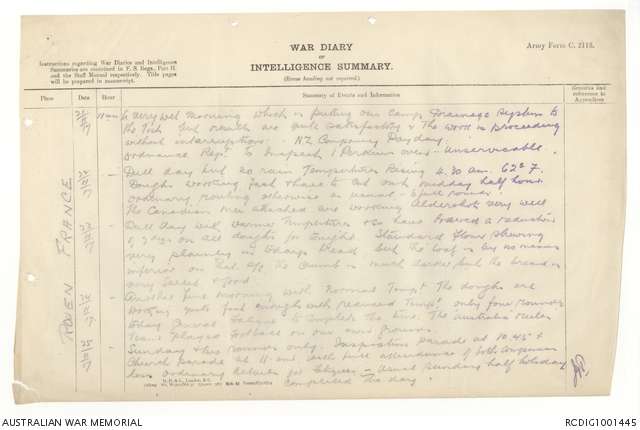 WAR DIARY
OR
INTELLIGENCE SUMMARY.
(Erase heading not required.)
Army Form C. 2118.
Instructions regarding War Diaries and Intelligence
Summaries are contained in F. S. Regs., Part II.
and the Staff Manual respectively. Title pages
will be prepared in manuscript.
Place
Date
Hour
Summary of Events and Information
Remarks and
reference to
Appendices
ROUEN FRANCE
21/11/17
A very wet morning which is putting our Camp Drainage System to
the Test but results are quite satisfactory & the work is proceeding
without interruption. - NZ Company Payday.
Ordnance Rep. to Inspect 1 Perkins oven - Unserviceable.
22/11/17
Dull day but no rain Temperature Rising 4.30 am. 62° F.
Doughs working fast & have to cut out midday half hour
ordinary routine otherwise as usual
The Canadian men attached are working Aldershots very well
23/11/17
Dull day with warmer Temperature & so have a reduction
of on all doughs for Tonight. Standard flour showing
very in todays bread but the loaf is by no means
inferior on that a/c the Crumb is much darker but the bread is
very sweet & good
24/11/17
Another fine morning with Normal Temp. The doughs are
working quite fast enough with reduced Temp. only four rounds
today Burial to complete the time. The Australian
Team played Football on our own ground.
25/11/17
Sunday & two rounds only. Inspection parade at 10.45 &
Church parade at 11 am with full attendance of both Companies
less ordinary details for - usual Sunday half holiday
completed the day.
AUSTRALIAN WAR MEMORIAL
RCDIG1001445